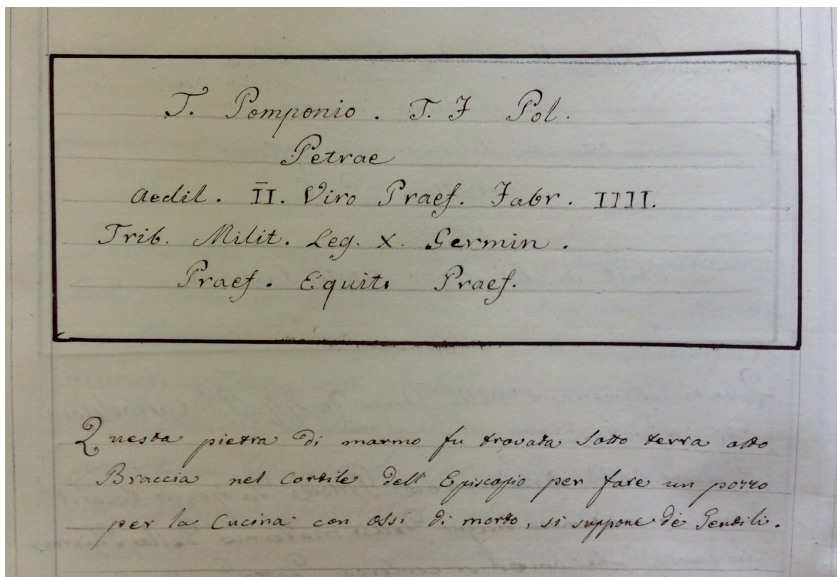 T. Pomponio . T. F Pol.
Petrae
Aedil . II. Viro Praef. Fabr . IIII.
Trib. Milit. Leg. X. Germin .
Praef . Equit. Praef.
Questa pietra di marmo fu trovata sotto terra otto
Braccia nel Cortile dell' Episcopio per fare un pozzo
per la Cucina con ossi di morto, si suppone de Gentili.